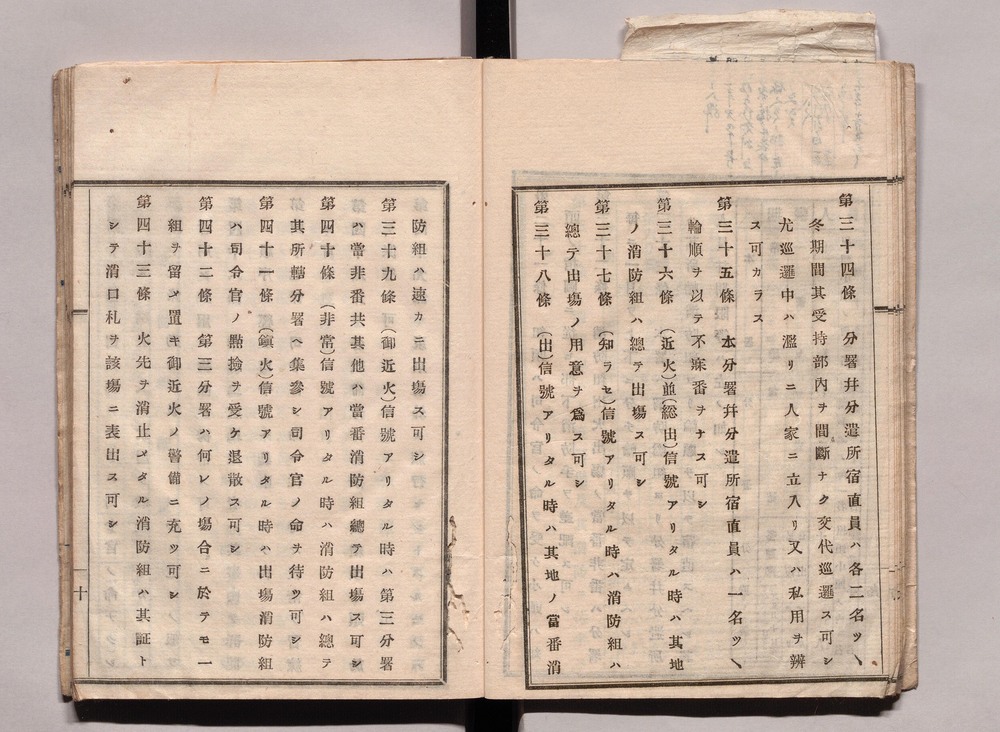 第三十四條　分署幷分遣所宿直員ハ各二名ツヽ
冬期間其受持部內ヲ間斷ナク交代巡邏ス可シ
尤巡邏中ハ濫リニ人家ニ立入リ又ハ私用ヲ辨
ス可カラス
第三十五條　本分署幷分遣所宿直員ハ一名ツヽ
輪順ヲ以テ不寐番ヲナス可シ
第三十六條　(近火)並(総出)信號アリタル時ハ其地
ノ消防組ハ總テ出塲ス可シ
第三十七條　(知ラセ)信號アリタル時ハ消防組ハ
總テ出塲ノ用意ヲ爲ス可シ
第三十八條　(出)信號アリタル時ハ其地ノ當番消
防組ハ速カニ出塲ス可シ
第三十九條　(御近火)信號アリタル時ハ第三分署
ハ當非番共其他ハ當番消防組總テ出塲ス可シ
第四十條　(非常)信號アリタル時ハ消防組ハ總テ
其所轄分署ヘ集參シ司令官ノ命ヲ待ツ可シ
第四十一條　(鎭火)信號アリタル時ハ出塲消防組
ハ司令官ノ點撿ヲ受ケ退散ス可シ
第四十二條　第三分署ハ何レノ塲合ニ於テモ一
組ヲ留メ置キ御近火ノ警備ニ充ツ可シ
第四十三條　火先ヲ消止メタル消防組ハ其証ト
シテ消口札ヲ該塲ニ表出ス可シ
十